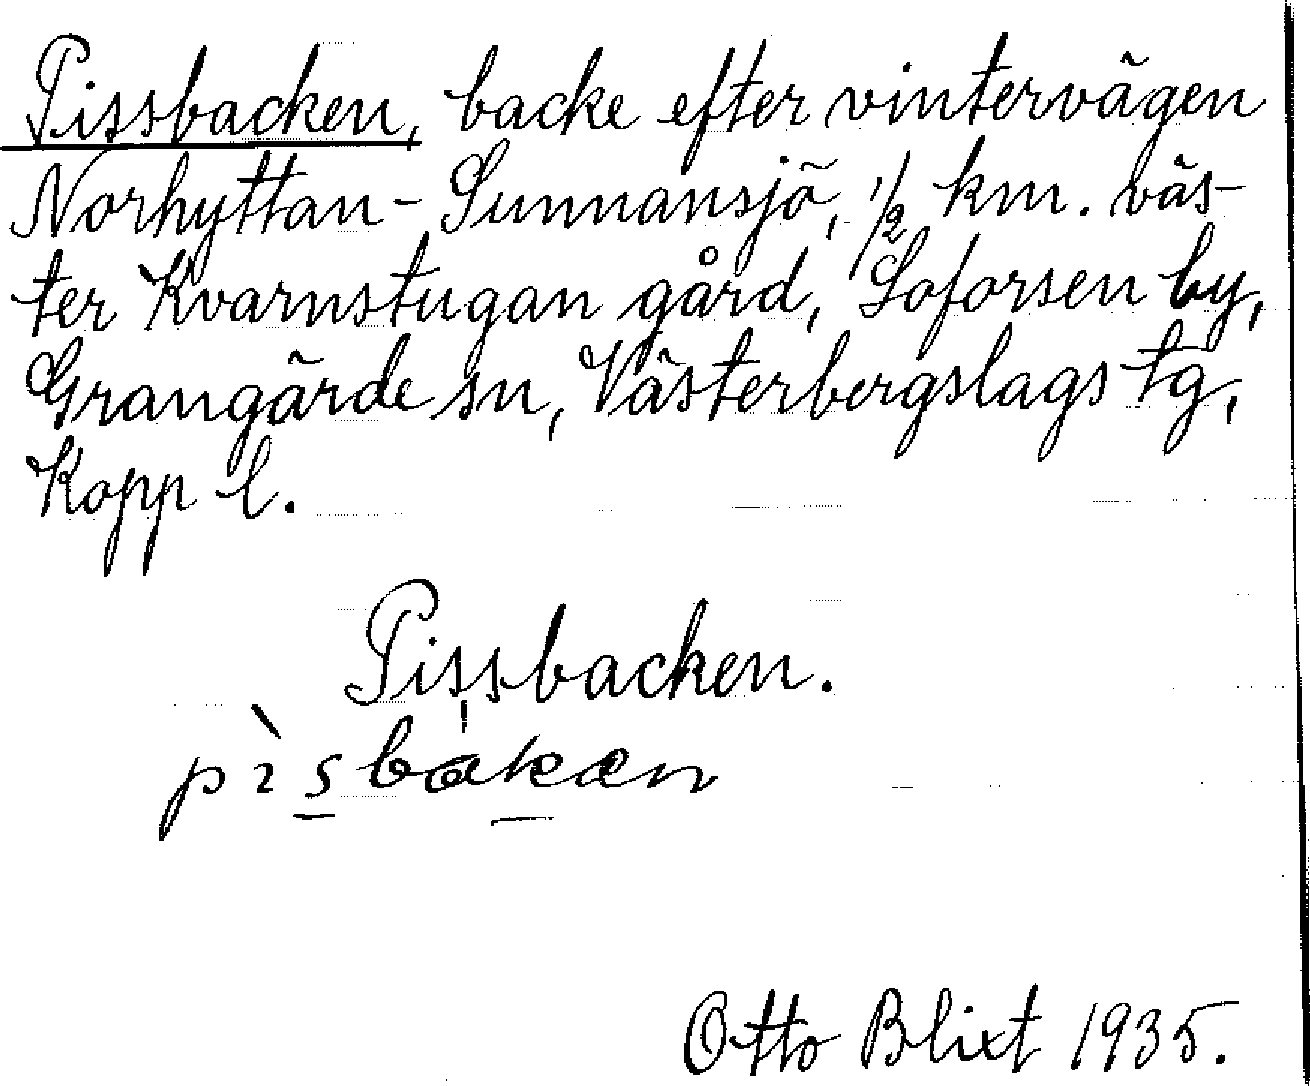 Pissbacken, backe efter vintervägen
Norhyttan - Sunnansjö, 1/2 km. väs-
ter Kvarnstugan gård, Loforsen by,
Grangärde sn, Västerbergslags tg,
Kopp l.
Pissbacken.
pìsbakæn
Otto Blixt 1935.